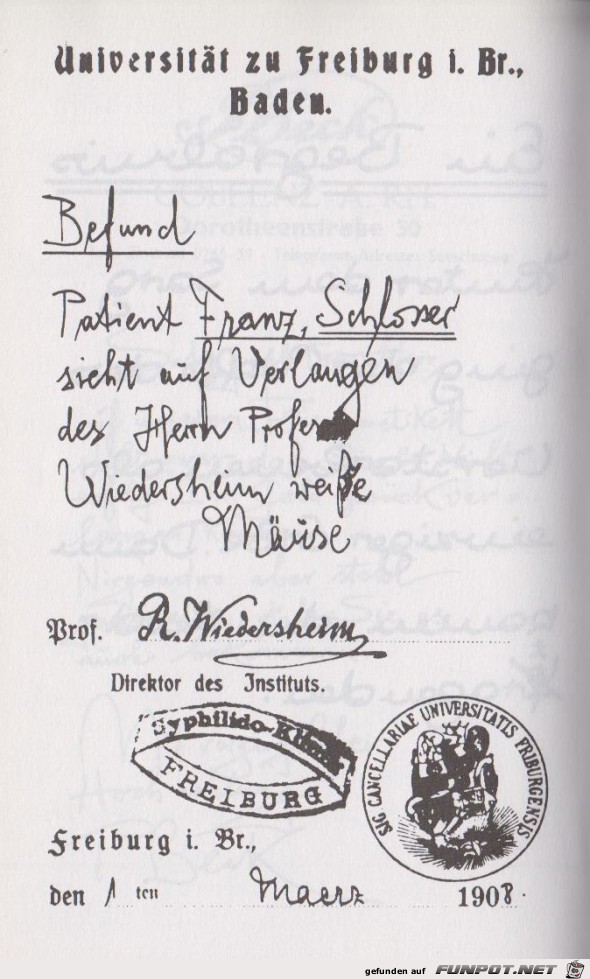 Universität zu Freiburg i. Br.,
Baden.
Befund
Patient Franz, Schlosser
sieht auf Verlangen
des Herrn Profes
Wiedersheim weiße
Mäuse
Prof. R. Wiedersheim
Direktor des Instituts.
Syphilido-Klinik
FREIBURG
SIG CANCELLARIAE UNIVERSITATIS FRIBURGENSIS
Freiburg i. Br.,
den 1 ten Maerz 1908.
gefunden auf FUNPOT.NET